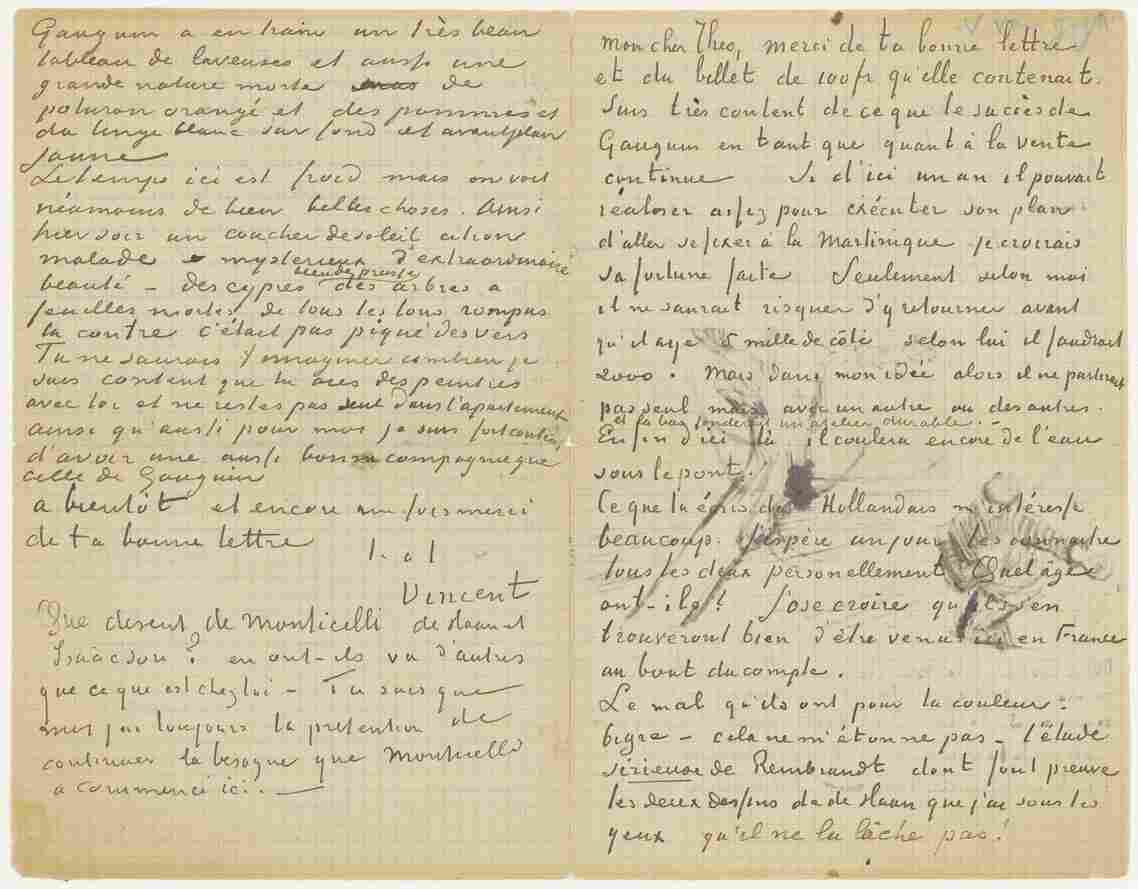 Gauguin a en train un très beau
tableau de laveuses et aussi une
grande nature morte de
potiron orangé et des pommes et
du linge blanc sur fond et avantplan
jaune
Le temps ici est froid mais on voit
néamoins de bien belles choses. Ainsi
hier soir un coucher de soleil citron
malade mysterieux d'extraordinaire
beauté – des cyprès des arbres a
feuilles mortes de tous les tons rompus
la contre c'était pas piqué des vers
Tu ne saurais t'imaginer combien je
suis content que tu aies des peintres
avec toi et ne restes pas seul dans l'apartement
ainsi qu'aussi pour moi je suis fort content
d'avoir une aussi bonne compagnie que
celle de Gauguin
a bientôt et encore une fois merci
de ta bonne lettre
t. à t
Vincent
Que disent de Monticelli de Haan et
Isaäcson? en ont-ils vu d'autres
que ce que est chez toi – Tu sais que
moi j'ai toujours la prétention de
continuer la besogne que Monticelli
a commencé ici. —
mon cher Theo, merci de ta bonne lettre
et du billet de 100 fr qu'elle contenait.
Suis très content de ce que le succès de
Gauguin en tant que quant à la vente
continue Si d'ici un an il pouvait
réaliser assez pour exécuter son plan
d'aller se fixer à la Martinique je croirais
sa fortune faite Seulement selon moi
il ne saurait risquer d'y retourner avant
qu'il aye 5 mille de côté, selon lui il faudrait
2000. Mais dans mon idée alors il ne partirait
pas seul mais avec un autre ou des autres.
et là bas fonderait un atelier durable. –
Enfin d'ici là il coulera encore de l'eau
sous le pont.
Ce que tu écris des Hollandais m'intéresse
beaucoup. J'espère un jour les connaitre
tous les deux personellement Quel âge
ont-ils? J'ose croire qu'ils s'en
trouveront bien d'être venus ici en France
au bout du compte.
Le mal qu'ils ont pour la couleur:
bigre – cela ne m'étonne pas – l'étude
sérieuse de Rembrandt dont font preuve
les deux dessins de de Haan que j'ai sous les
yeux qu'il ne la lâche pas!